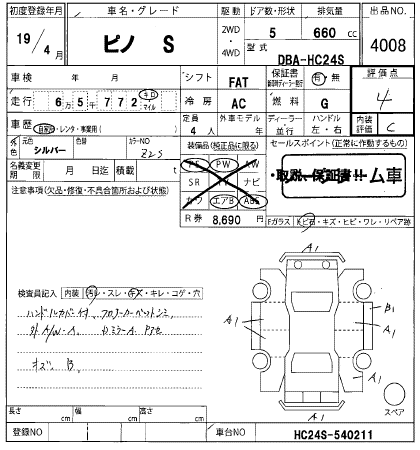 初度登録年月 車名・グレード 駆動 ドア数・形状 排気量 出品NO.
19/4月 ピノ S 2WD・4WD 5 660 cc 4008
型式 DBA-HC24S
車検 年 月 シフト FAT 保証書 有・無 評価点 4
走行 6万5千772 キロ マイル 冷房 AC 燃料 G 内装評価 C
車歴 自家用・レンタ・事業用( ) 定員 4人 外車モデル 年 ディーラー・並行 ハンドル 左・右
外色 元色 シルバー 色替 カラーNO Z2S 装備品(純正品に限る) セールスポイント(正常に作動するもの)
名義変更期限 月 日迄 積載 t PS PW AW
SR ナビ
カワ エアB ABS
・取説・保証書!!
ム車
注意事項(欠品・修復・不具合箇所および状態) R券 8,690円 Fガラス 飛石・キズ・ヒビ・ワレ・リペア跡
A1
検査員記入 内装 汚レ・スレ・キズ・キレ・コゲ・穴
ハンドルカバー付
外A/W-A
キズ B
A1
A1
B1
A1
A1
A1
スペア
長さ cm 幅 cm 高さ cm
登録NO 車台NO HC24S-540211